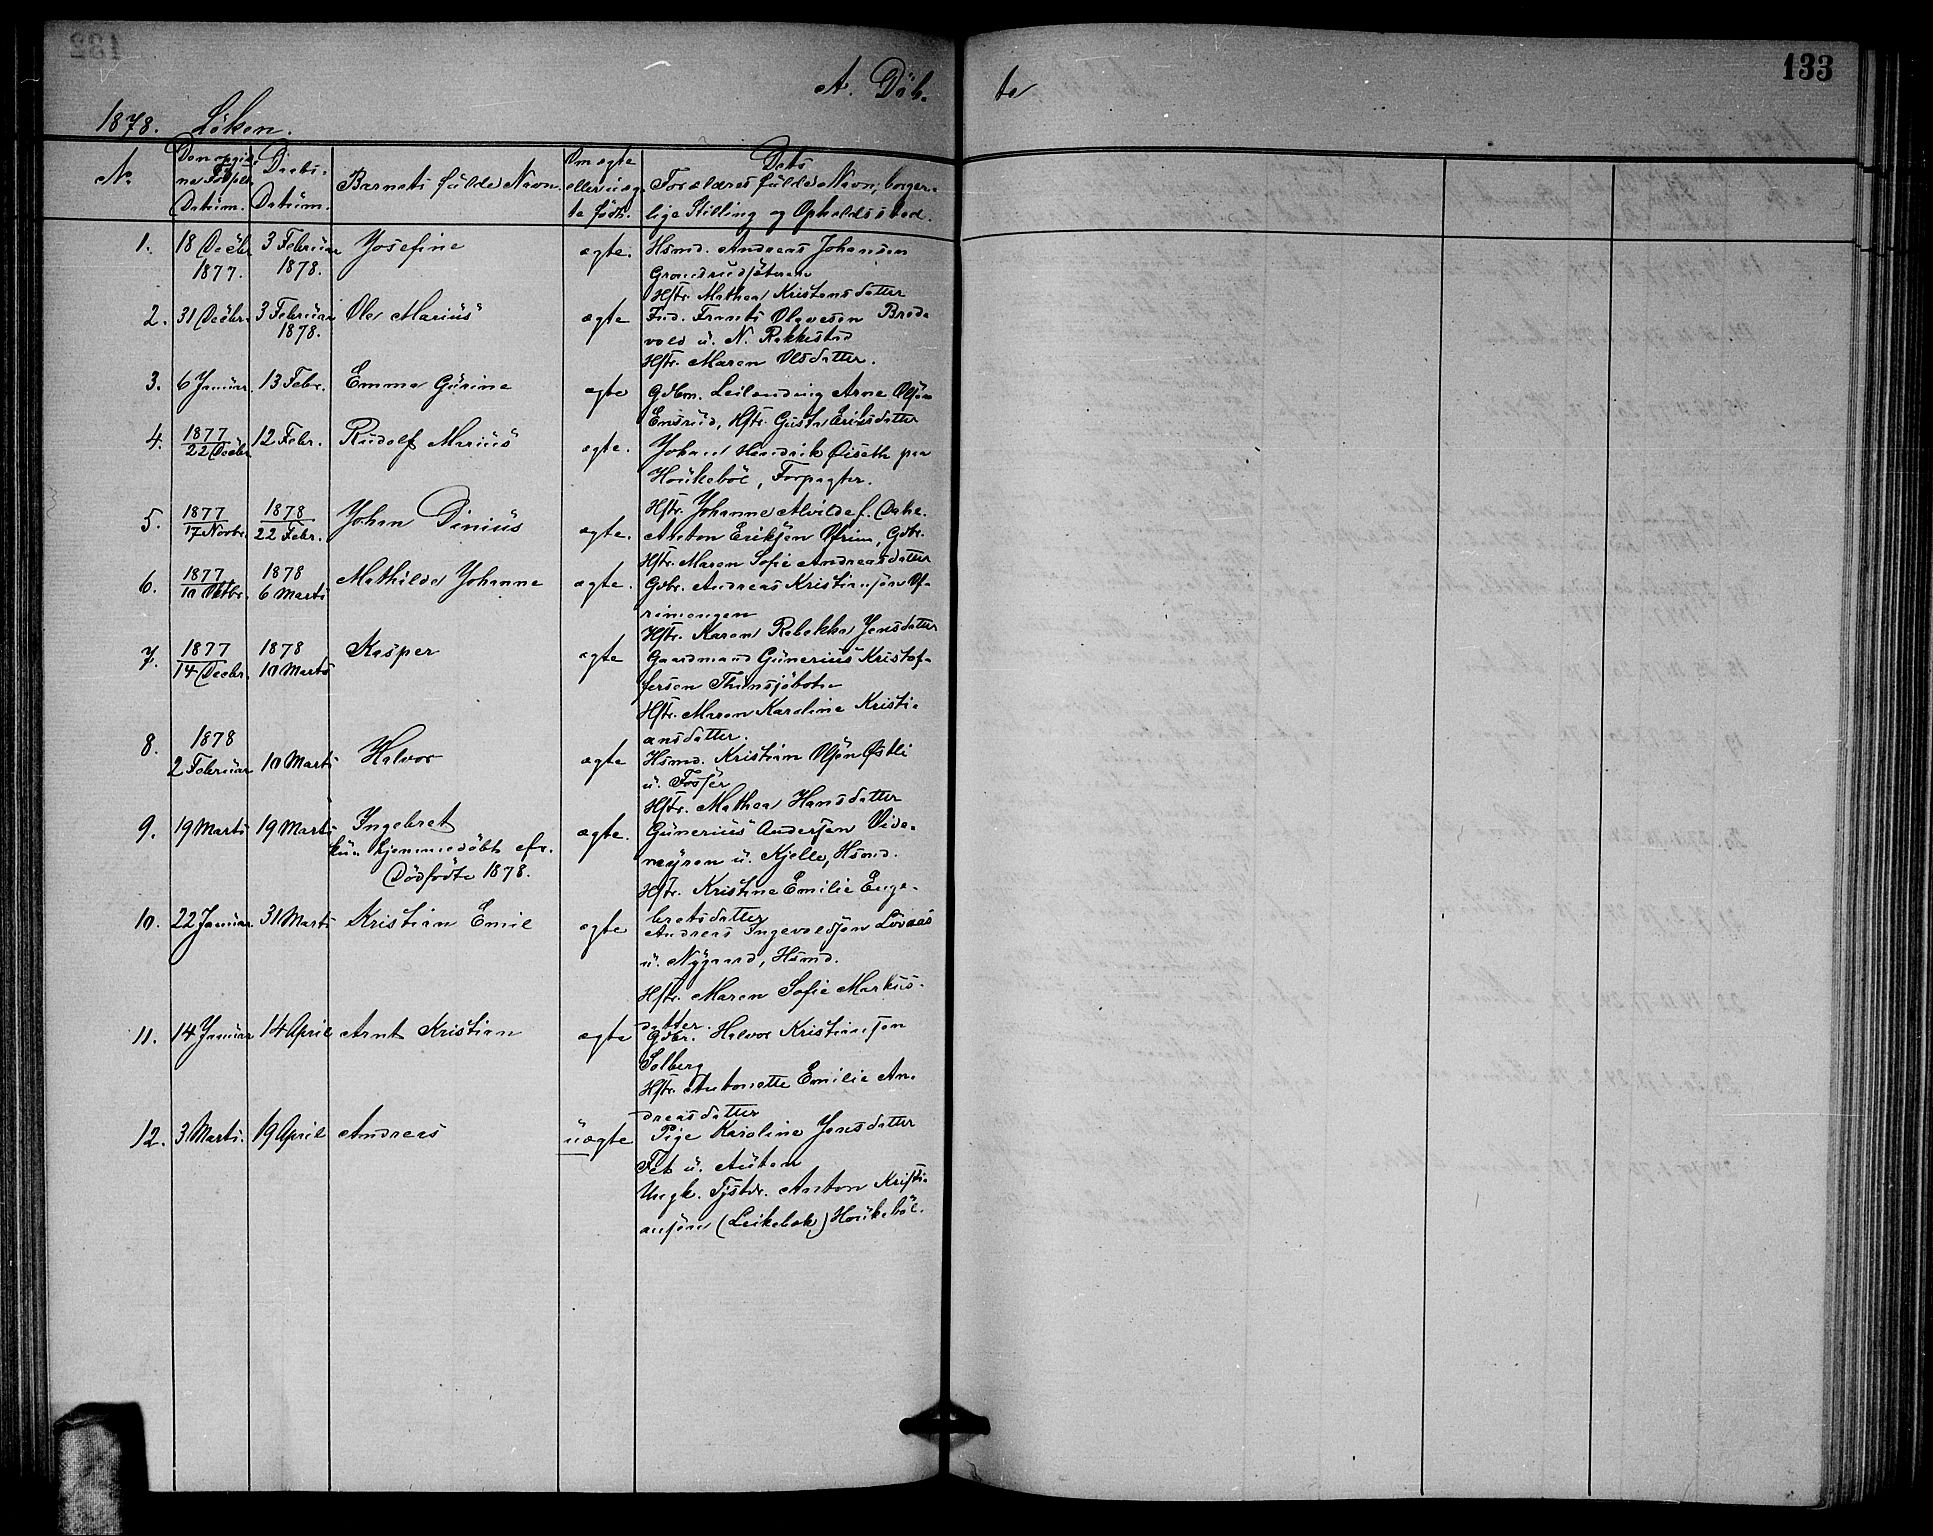 133
A. Döb- te
1878. Löken.
No
Den opgivne Födsels Datum.
Daabs-Datum.
Barnets fulde Navn.
Om ægte eller uægte födt.
Dets Forældres fulde Navn, borgerlige Stilling og Opholdssted.
1. 18 Decbr 1877. 3 Februar 1878. Josefine ægte. Hsmd. Andreas Johansen
Hstr. Mathea Kristensdatter
2. 31 Decbr. 3 Februar 1878. Ole Marius ægte Frants Olavesen Brede-
vold u. N. Rakkestad
Hstr. Maren Olsdatter.
3. 6 Januar 13 Febr. Emma Gurine ægte Gdbm. Leilending Arne Olsen
Ensrud, Hstr. Gusta Eriksdatter
4. 1877 22 Decbr 12 Febr. Rudolf Marius ægte. Johan Hendrik Öiseth paa
Houkeböl, Forpagter.
Hstr. Johanne Alvilde f. Dahe.
5. 1877 17 Novbr. 1878 22 Febr. Johan Dinius ægte. Anton Eriksen Ofrim, Gdbr.
Hstr. Maren Sofie Andreasdatter
6. 1877 10 Oktbr. 1878 6 Marts Mathilde Johanne ægte. Gdbr. Andreas Kristiansen Of-
rimengen
Hstr. Karen Rebekka Jensdatter
7. 1877 14 Decbr. 1878 10 Marts Kasper ægte Gaardmand Gunerius Kristof-
fersen
Hstr. Maren Karoline Kristi-
ansdatter.
8. 1878 2 Februar 10 Marts Halvor ægte Hsmd. Kristian Olsen Östli
u. Fosser
Hstr. Mathea Hansdatter
9. 19 Marts 19 Marts Ingebret ægte. Gunerius Andersen Vide-
kun hjemmedöbt cfr. Dödfödte 1878. möyren u. Kjelle, Hsmd.
Hstr. Kristine Emilie Enge-
bretsdatter
10. 22 Januar 31 Marts Kristian Emil ægte Andreas Ingevoldsen Lövaas
u. Nygaard, Hsmd.
Hstr. Maren Sofie Markus-
datter.
11. 14 Januar 14 April Arnt Kristian ægte Gdbr. Halvor Kristiansen
Solberg
Hstr. Antonette Emilie An-
dreasdatter
12. 3 Marts. 19 April Andreas uægte Pige Karoline Jensdatter
Fet u. Auten
Ungk. Tjstdr. Anton Kristi-
ansen (Leikebak) Houkeböl.